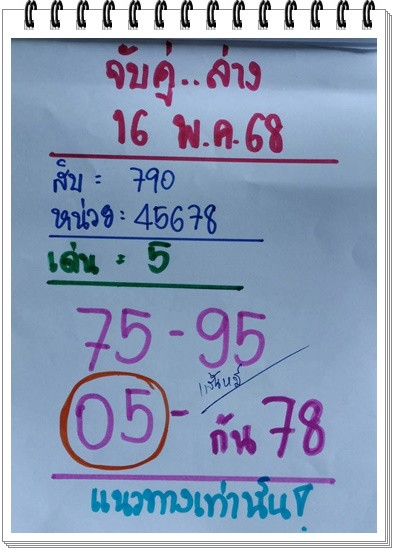 จับคู่..ล่าง
16 พ.ค.68
สิบ = 790
หน่วย : 45678
เด่น = 5
75-95
05- กัน 78
แนวทางเท่านั้น